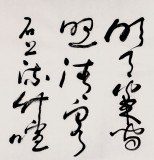 明月松间
照清泉
石上流竹喧